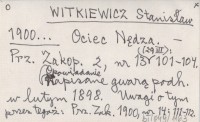 WITKIEWICZ Stanisław
1900... Ociec Nędza. -
(29 III)
Prz. Zakop. 2, nr 13 : 101-104.
Opowiadanie
napisane gwarą podh.
w lutym 1898. Uwagi o tym
przez tegoż. Prz. Zak. 1900, nr 14 : 111-112.